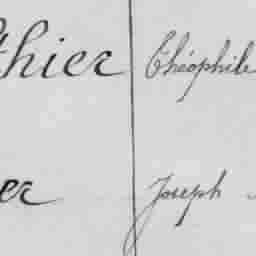 thier Théophile
er Joseph